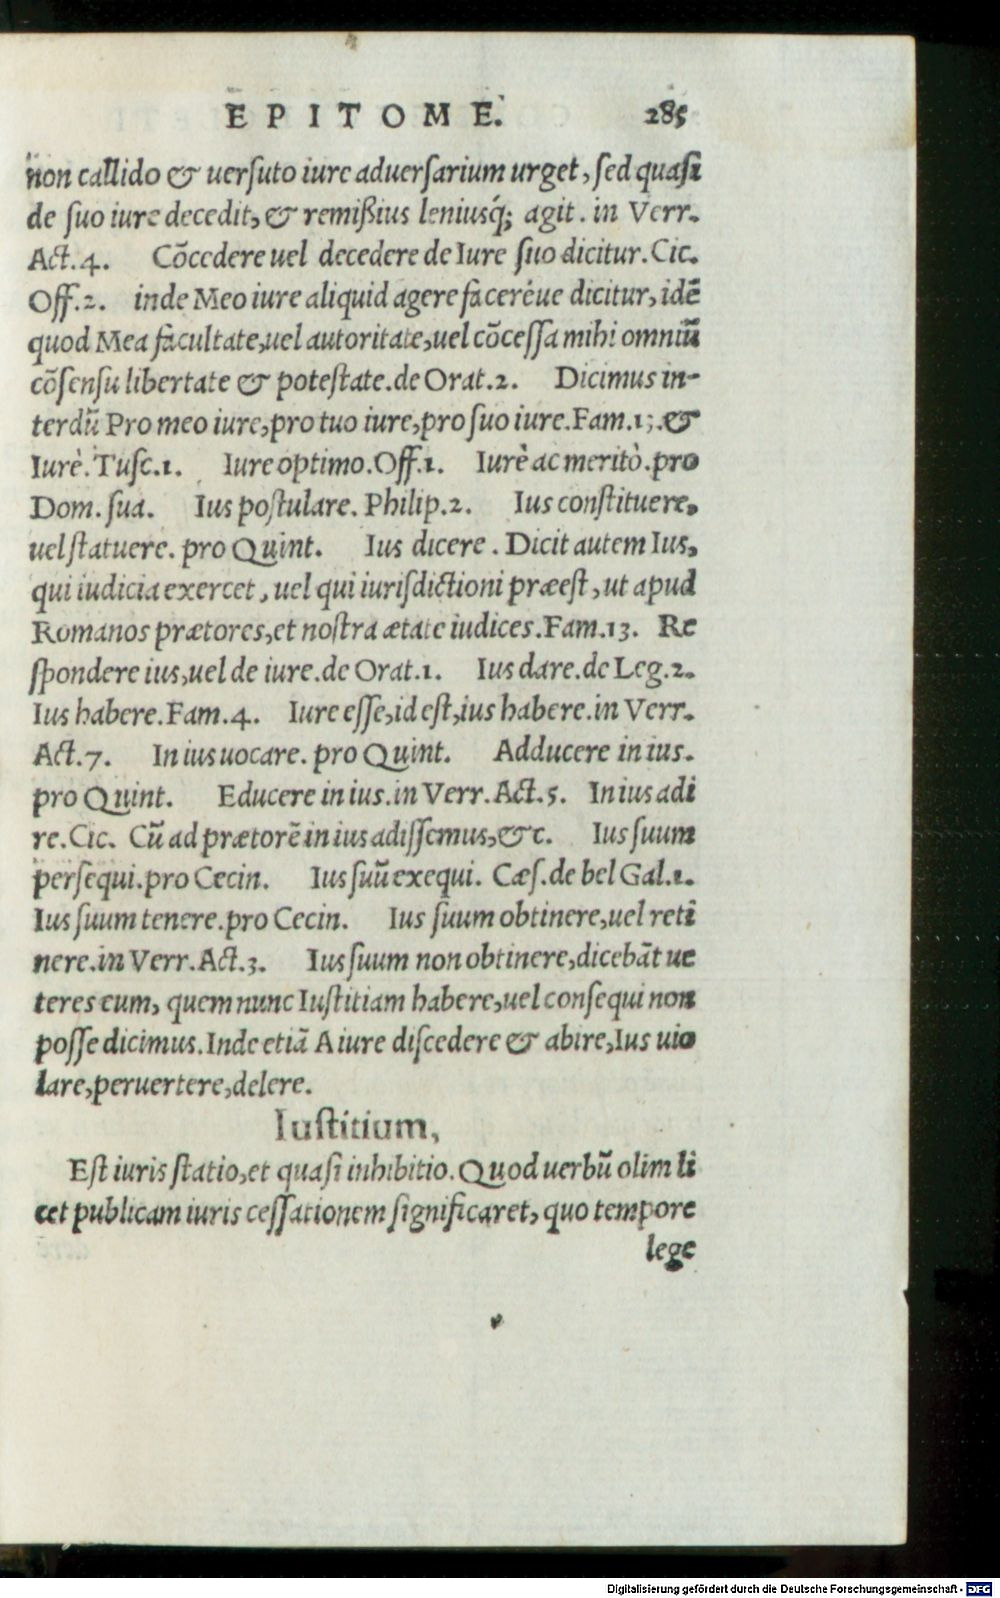 EPITOME. 285
non callido & uersuto iure aduersarium urget, sed quasi
de suo iure decedit, & remißius leniusq́; agit. in Verr.
Act.4. Cõcedere uel decedere de Iure suo dicitur. Cic.
Off.2. inde Meo iure aliquid agere faceréue dicitur, idẽ
quod Mea facultate, uel autoritate, uel cõcessa mihi omniũ
cõsensu libertate & potestate. de Orat.2. Dicimus in-
terdũ Pro meo iure, pro tuo iure, pro suo iure. Fam.13. &
Iurè. Tusc.1. Iure optimo. Off.1. Iurè ac meritò. pro
Dom. sua. Ius postulare. Philip.2. Ius constituere,
uel statuere. pro Quint. Ius dicere. Dicit autem Ius,
qui iudicia exercet, uel qui iurisdictioni præest, ut apud
Romanos prætores, et nostra ætate iudices. Fam.13. Re
spondere ius, uel de iure. de Orat.1. Ius dare. de Leg.2.
Ius habere. Fam.4. Iure esse, id est, ius habere. in Verr.
Act.7. In ius uocare. pro Quint. Adducere in ius.
pro Quint. Educere in ius. in Verr. Act.5. In ius adi
re. Cic. Cũ ad prætorẽ in ius adissemus, &c. Ius suum
persequi. pro Cecin. Ius suũ exequi. Cæs. de bel Gal.1.
Ius suum tenere. pro Cecin. Ius suum obtinere, uel reti
nere. in Verr. Act.3. Ius suum non obtinere, dicebãt ue
teres eum, quem nunc Iustitiam habere, uel consequi non
posse dicimus. Inde etiã A iure discedere & abire, Ius uio
lare, peruertere, delere.
Iustitium,
Est iuris statio, et quasi inhibitio. Quod uerbũ olim li
cet publicam iuris cessationem significaret, quo tempore
lege
Digitalisierung gefördert durch die Deutsche Forschungsgemeinschaft - DFG